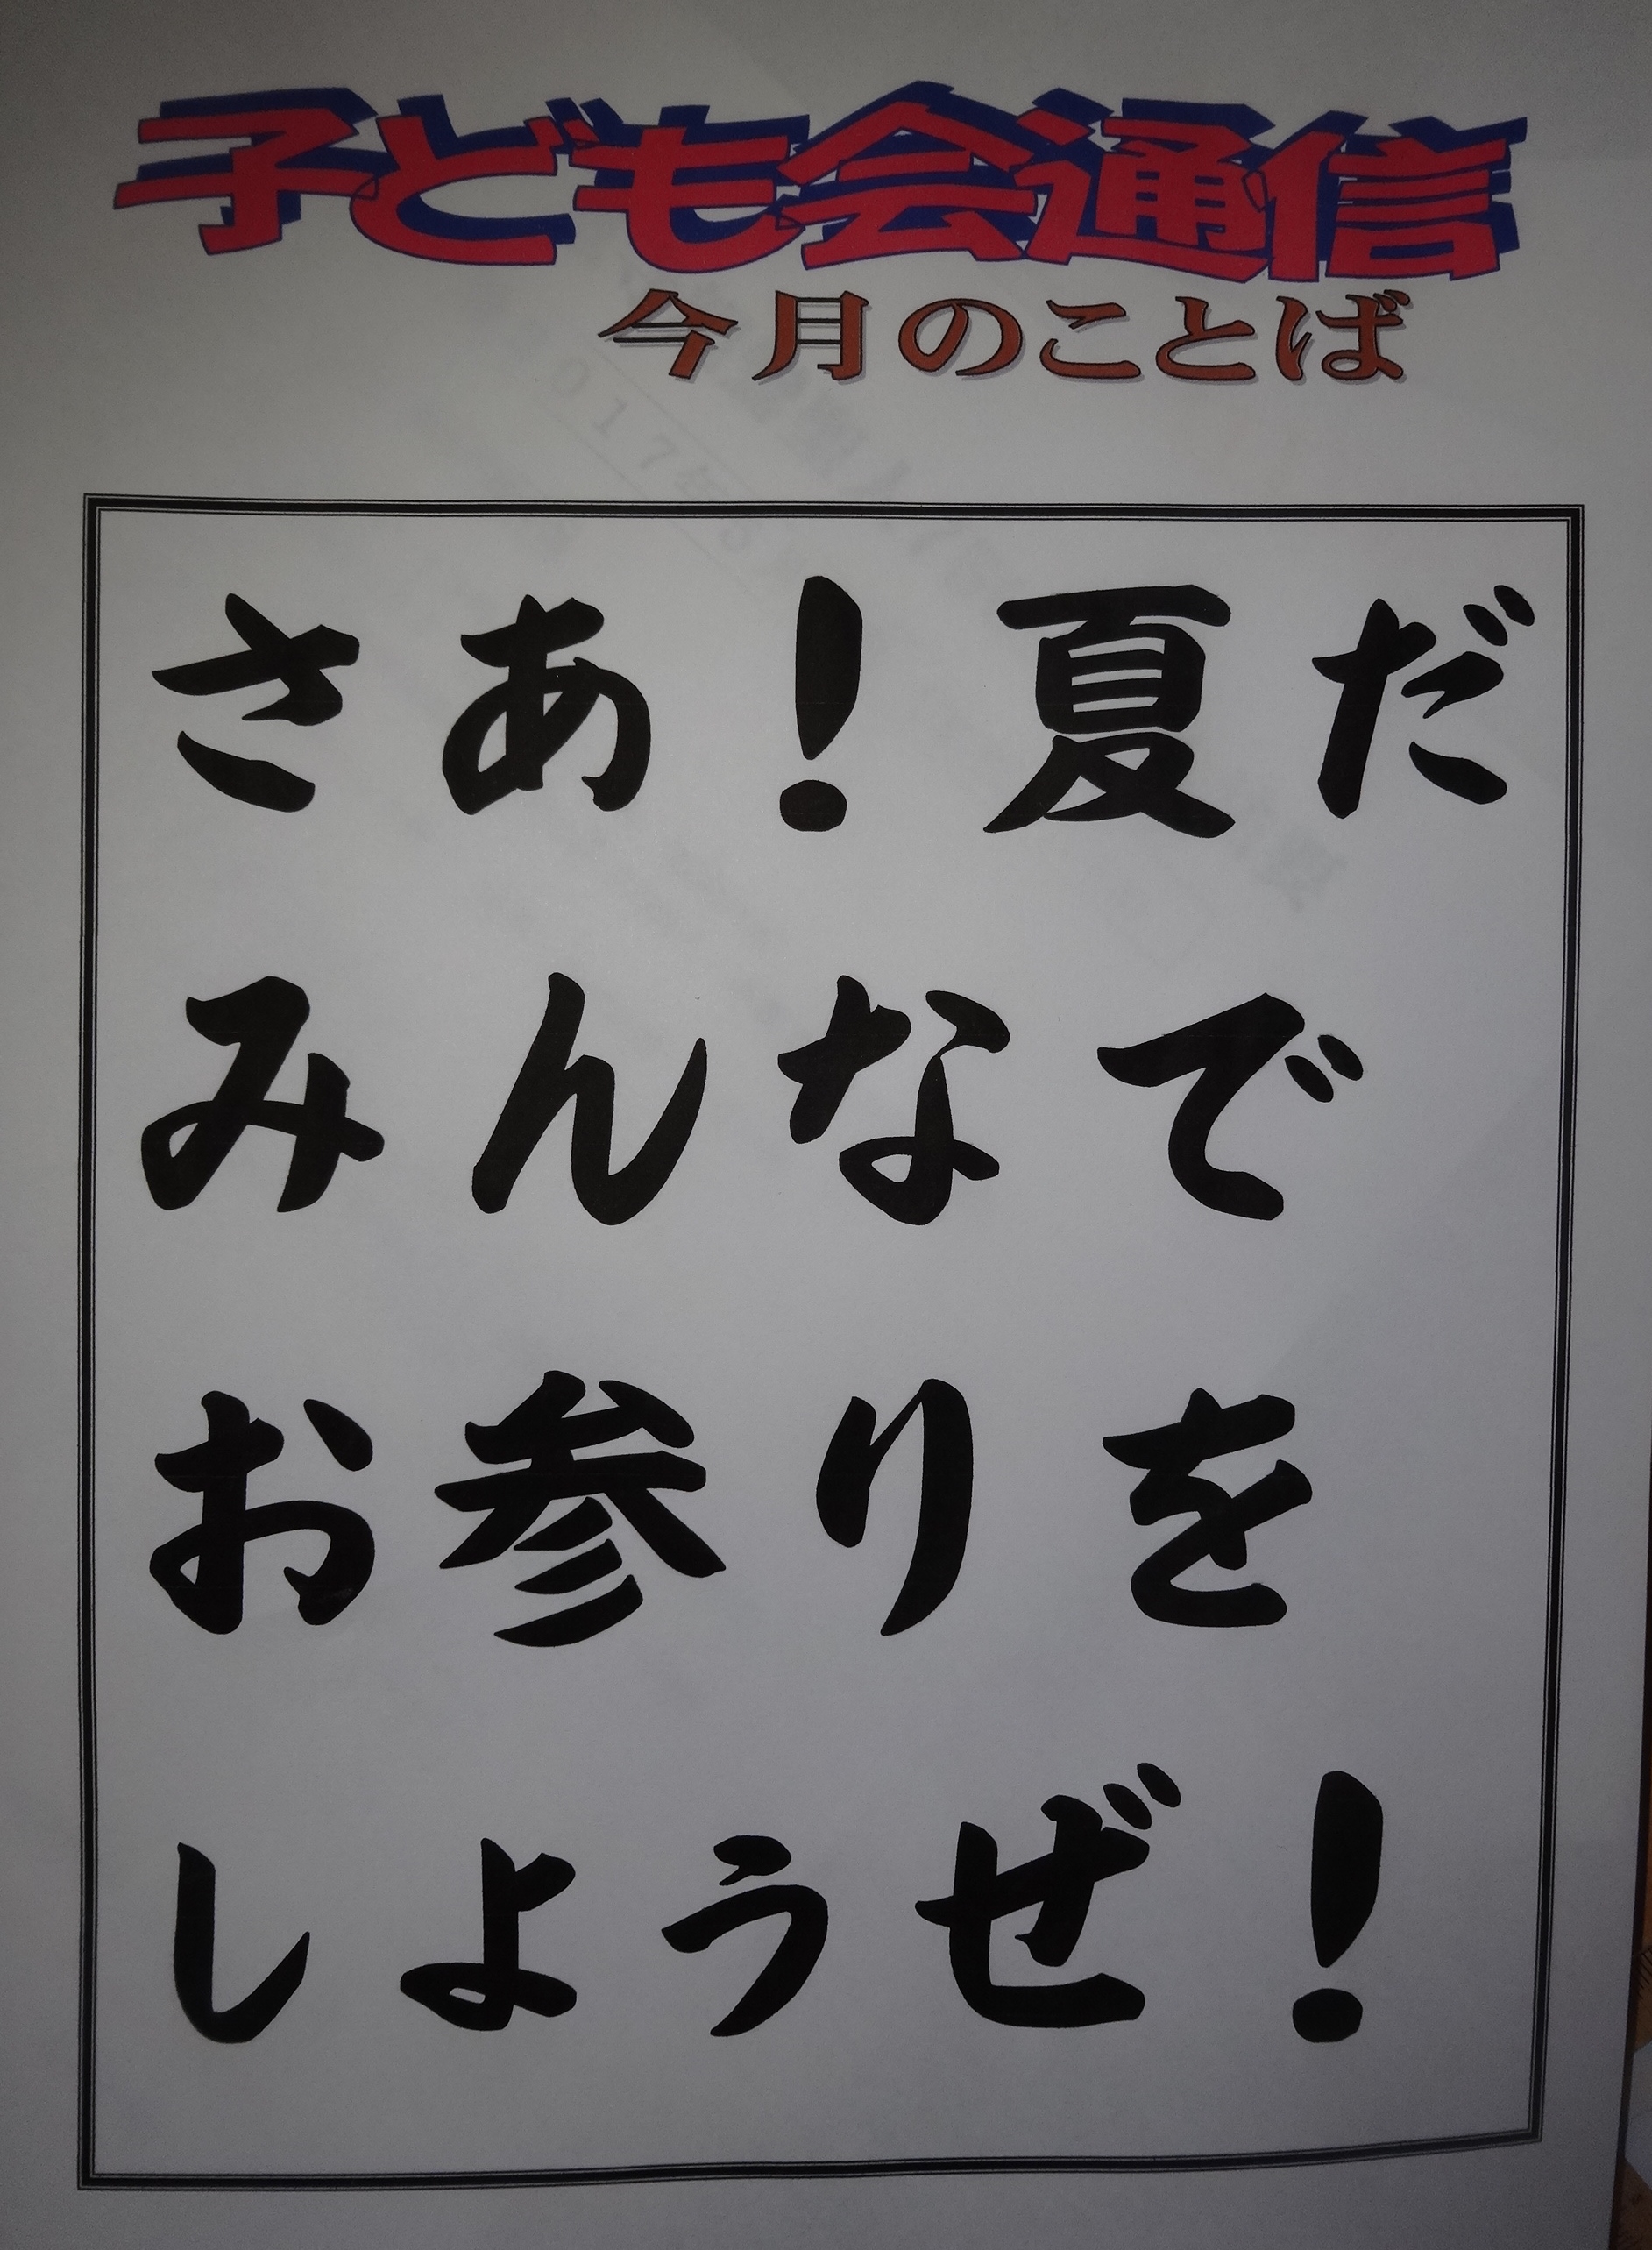 子ども会通信
今月のことば
さあ！夏だ
みんなで
お参りを
しようぜ！